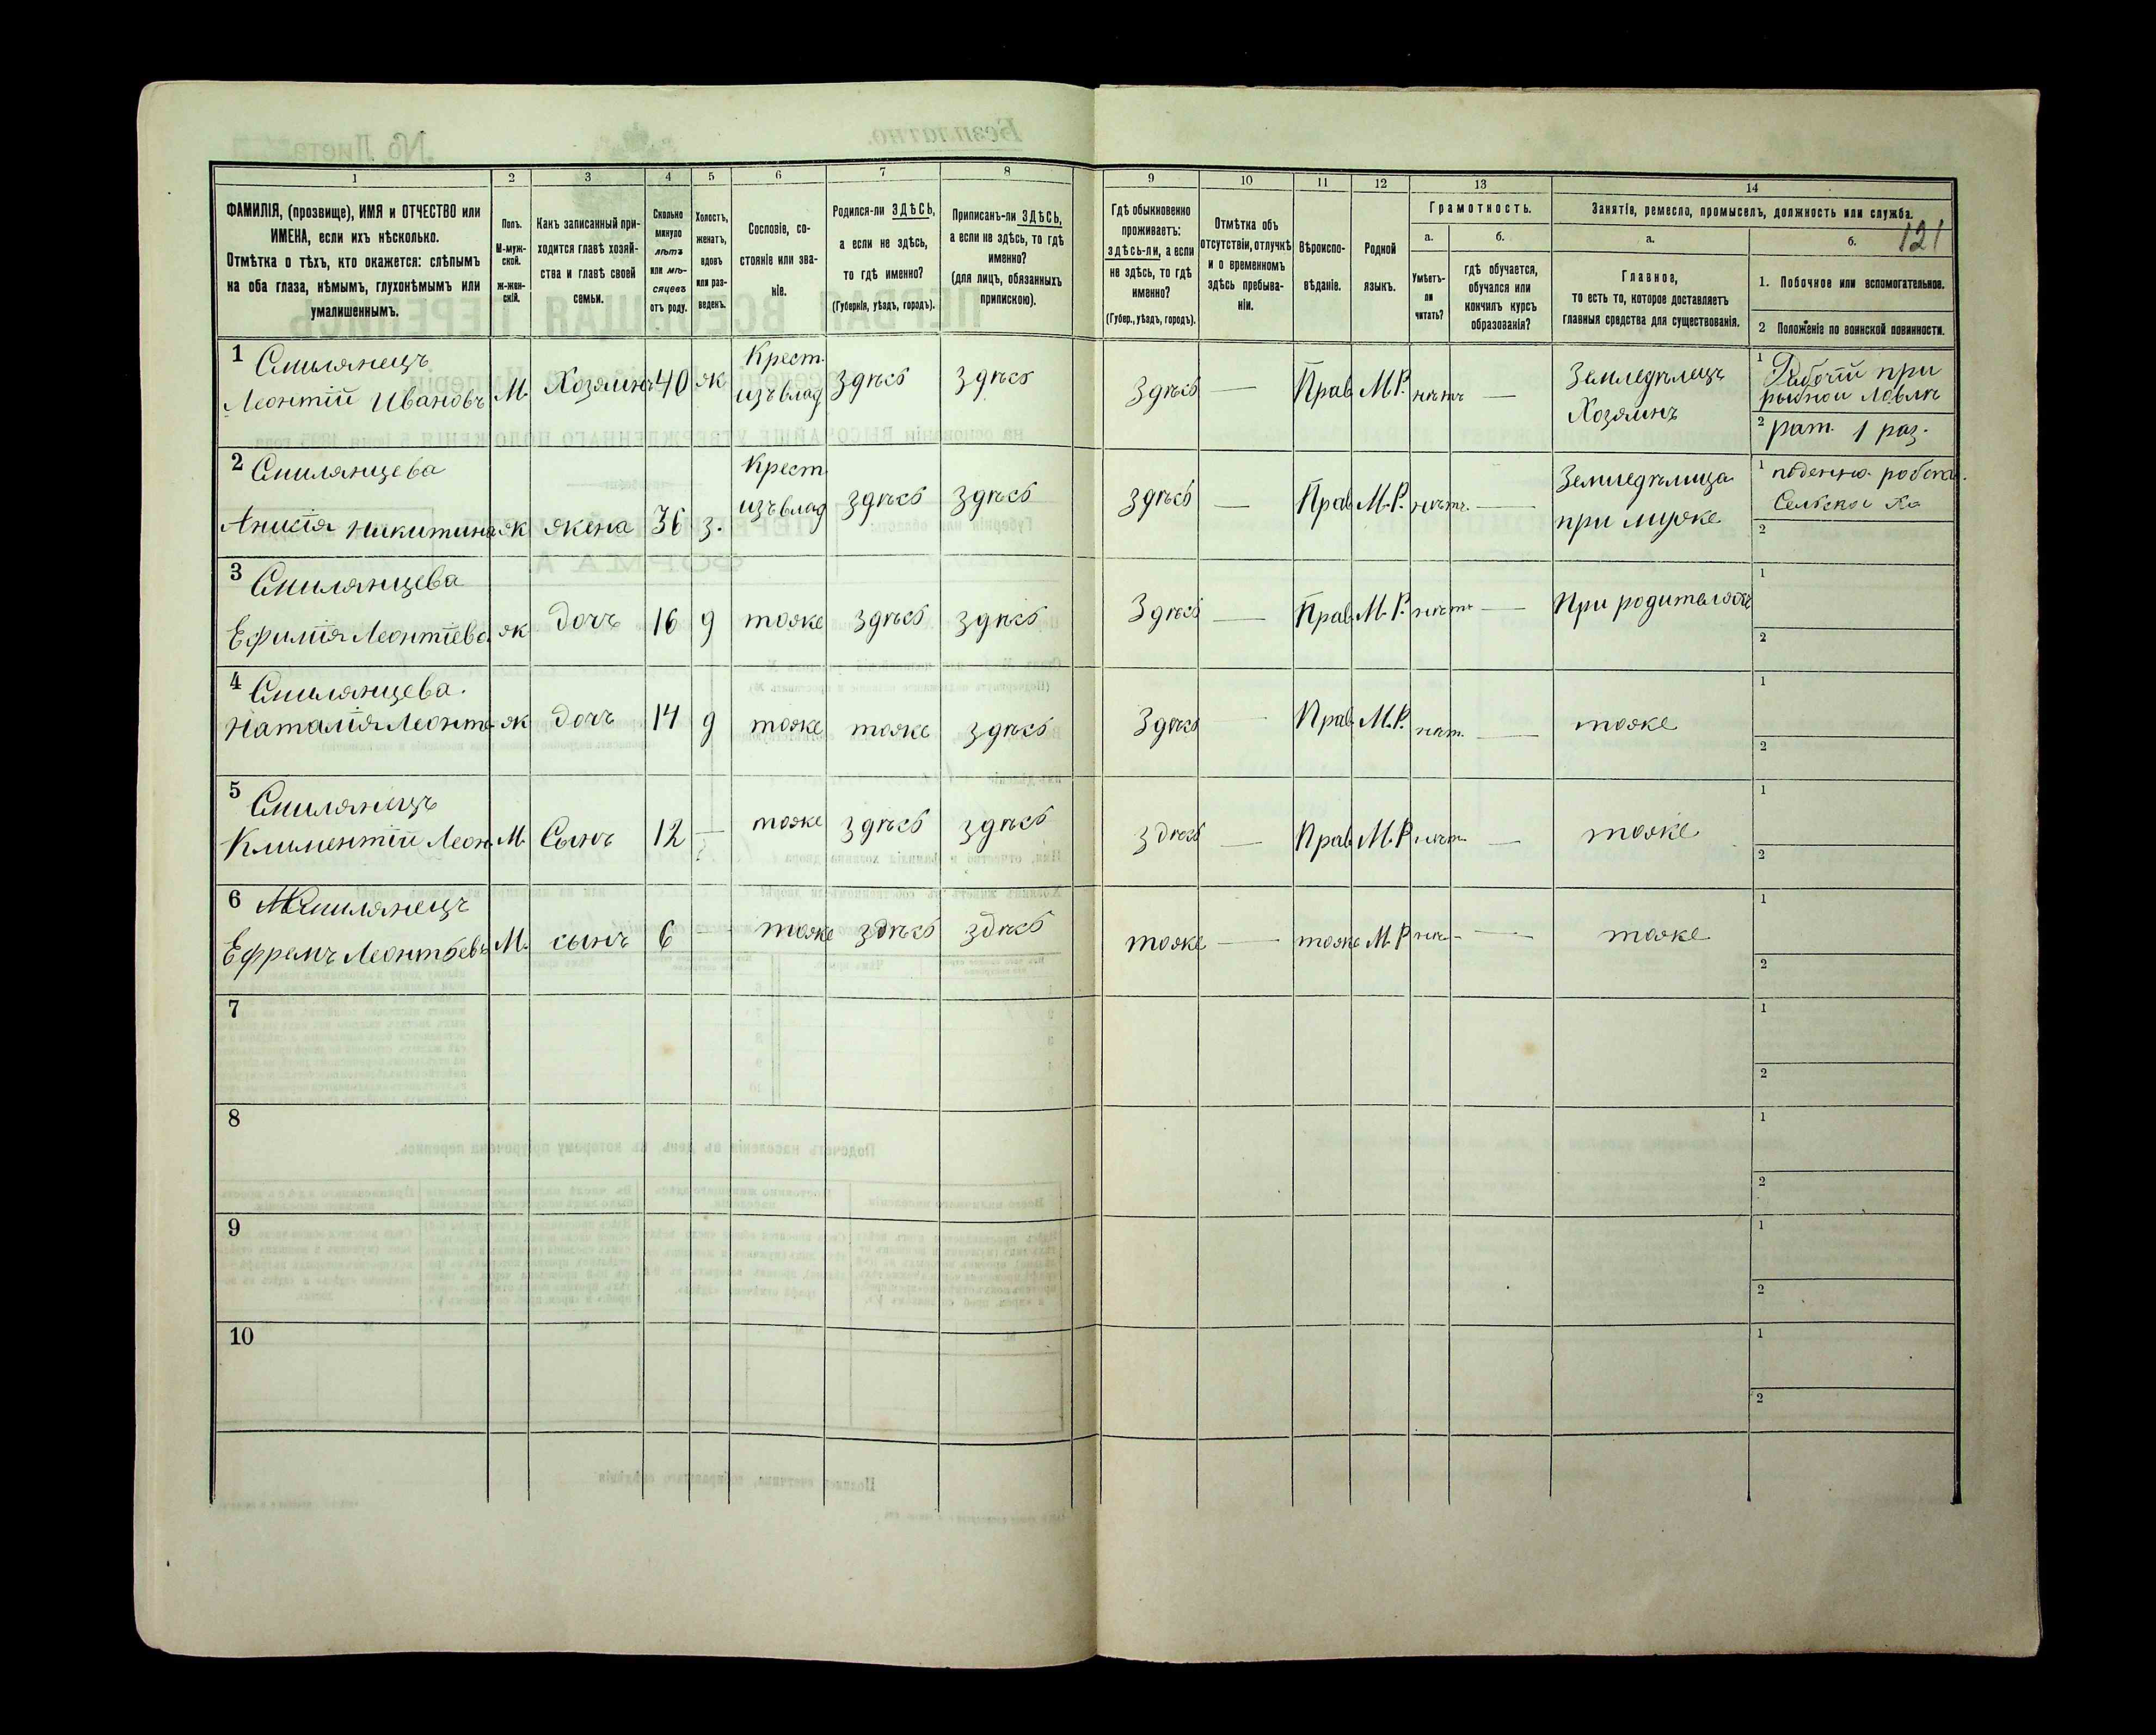 1 2 3 4 5 6 7 8 9 10 11 12 13 14
ФАМИЛІЯ, (прозвище), ИМЯ и ОТЧЕСТВО или
ИМЕНА, если ихъ нѣсколько.
Отмѣтка о тѣхъ, кто окажется: слѣпымъ
на оба глаза, нѣмымъ, глухонѣмымъ или
умалишеннымъ.
Полъ.
М-муж-
ской.
ж-жен-
скій.
Какъ записанный при-
ходится главѣ хозяй-
ства и главѣ своей
семьи.
Сколько
минуло
лѣтъ
или мѣ-
сяцевъ
отъ роду.
Холостъ,
женатъ,
вдовъ
или раз-
веденъ.
Сословіе, со-
стояніе или зва-
ніе.
Родился-ли ЗДѢСЬ,
а если не здѣсь,
то гдѣ именно?
(Губернія, уѣздъ, городъ).
Приписанъ-ли ЗДѢСЬ,
а если не здѣсь, то гдѣ
именно?
(для лицъ, обязанныхъ
припискою).
Гдѣ обыкновенно
проживаетъ:
здѣсь-ли, а если
не здѣсь, то гдѣ
именно?
(Губер., уѣздъ, городъ).
Отмѣтка объ
отсутствіи, отлучкѣ
и о временномъ
здѣсь пребыва-
ніи.
Вѣроиспо-
вѣданіе.
Родной
языкъ.
Грамотность.
а.
Умѣетъ-
ли
читать?
б.
гдѣ обучается,
обучался или
кончилъ курсъ
образованія?
Занятіе, ремесло, промыселъ, должность или служба.
а.
Главное,
то есть то, которое доставляетъ
главныя средства для существованія.
б.
121
1. Побочное или вспомогательное.
2 Положеніе по воинской повинности.
1 Смилянецъ
Леонтій Ивановъ М. Хозяинъ 40 ж Крест.
изъ влад здѣсь здѣсь Здѣсь — Прав М.Р. нѣтъ — Земледѣлецъ
Хозяинъ
1 Рабочій при
рыбной ловлѣ
2 рат. 1 раз.
2 Смилянцева
Анисія Никитина ж жена 36 з. Крест
изъ влад здѣсь здѣсь здѣсь — Прав М.Р. нѣтъ. — Земледѣлица
при мужѣ
1 поденно. робота.
Сельско Хо
2
3 Смилянцева
Ефимія Леонтіева ж дочь 16 д тоже здѣсь здѣсь Здѣсь — Прав. М.Р. нѣтъ — При родителяхъ
1
2
4 Смилянцева.
Наталія Леонт. ж дочь 14 д тоже тоже здѣсь Здѣсь — Прав М.Р. нѣт. — тоже
1
2
5 Смилянецъ
Климентій Леон. М. Сынъ 12 — тоже здѣсь здѣсь здѣсь — Прав М.Р нѣт. — тоже
1
2
6 Смилянецъ
Ефремъ Леонтьевъ М. сынъ 6 — тоже здѣсь здѣсь тоже — тоже М.Р нѣт — тоже
1
2
7
1
2
8
1
2
9
1
2
10
1
2